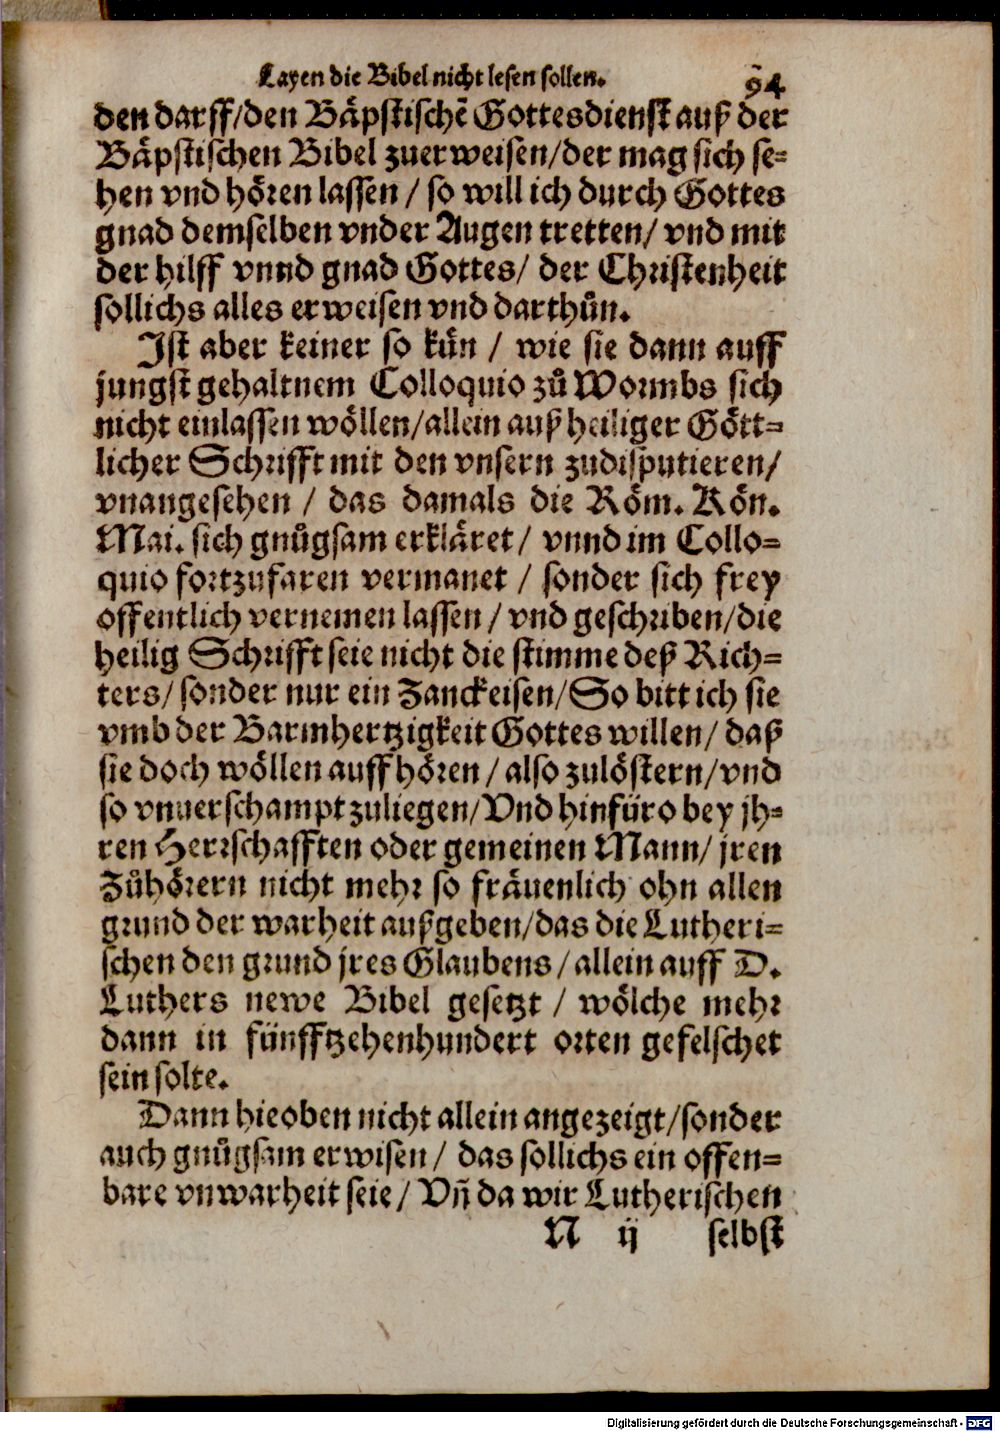 Layen die Bibel nicht lesen sollen. 94
den darff/den Bäpstischē Gottesdienst auß der
Bäpstischen Bibel zuerweisen/der mag sich se=
hen vnd hören lassen / so will ich durch Gottes
gnad demselben vnder Augen tretten/ vnd mit
der hilff vnnd gnad Gottes/ der Christenheit
sollichs alles erweisen vnd darthůn.
Ist aber keiner so kün / wie sie dann auff
jungst gehaltnem Colloquio zů Wormbs sich
nicht einlassen wöllen/allein auß heiliger Gött=
licher Schrifft mit den vnsern zudisputieren/
vnangesehen / das damals die Röm. Kön.
Mai. sich gnůgsam erkläret/ vnnd im Collo=
quio fortzufaren vermanet / sonder sich frey
offentlich vernemen lassen / vnd geschriben/die
heilig Schrifft seie nicht die stimme deß Rich=
ters/ sonder nur ein Zanckeisen/So bitt ich sie
vmb der Barmhertzigkeit Gottes willen/ daß
sie doch wöllen auffhören / also zulöstern/vnd
so vnuerschampt zuliegen/Vnd hinfüro bey jh=
ren Herrschafften oder gemeinen Mann/ jren
Zůhörern nicht mehr so fräuenlich ohn allen
grund der warheit außgeben/das die Lutheri=
schen den grund jres Glaubens / allein auff D.
Luthers newe Bibel gesetzt / wölche mehr
dann in fünfftzehenhundert orten gefelschet
sein solte.
Dann hieoben nicht allein angezeigt/sonder
auch gnůgsam erwisen / das sollichs ein offen=
bare vnwarheit seie / Vñ da wir Lutherischen
N ij selbst
Digitalisierung gefördert durch die Deutsche Forschungsgemeinschaft - DFG